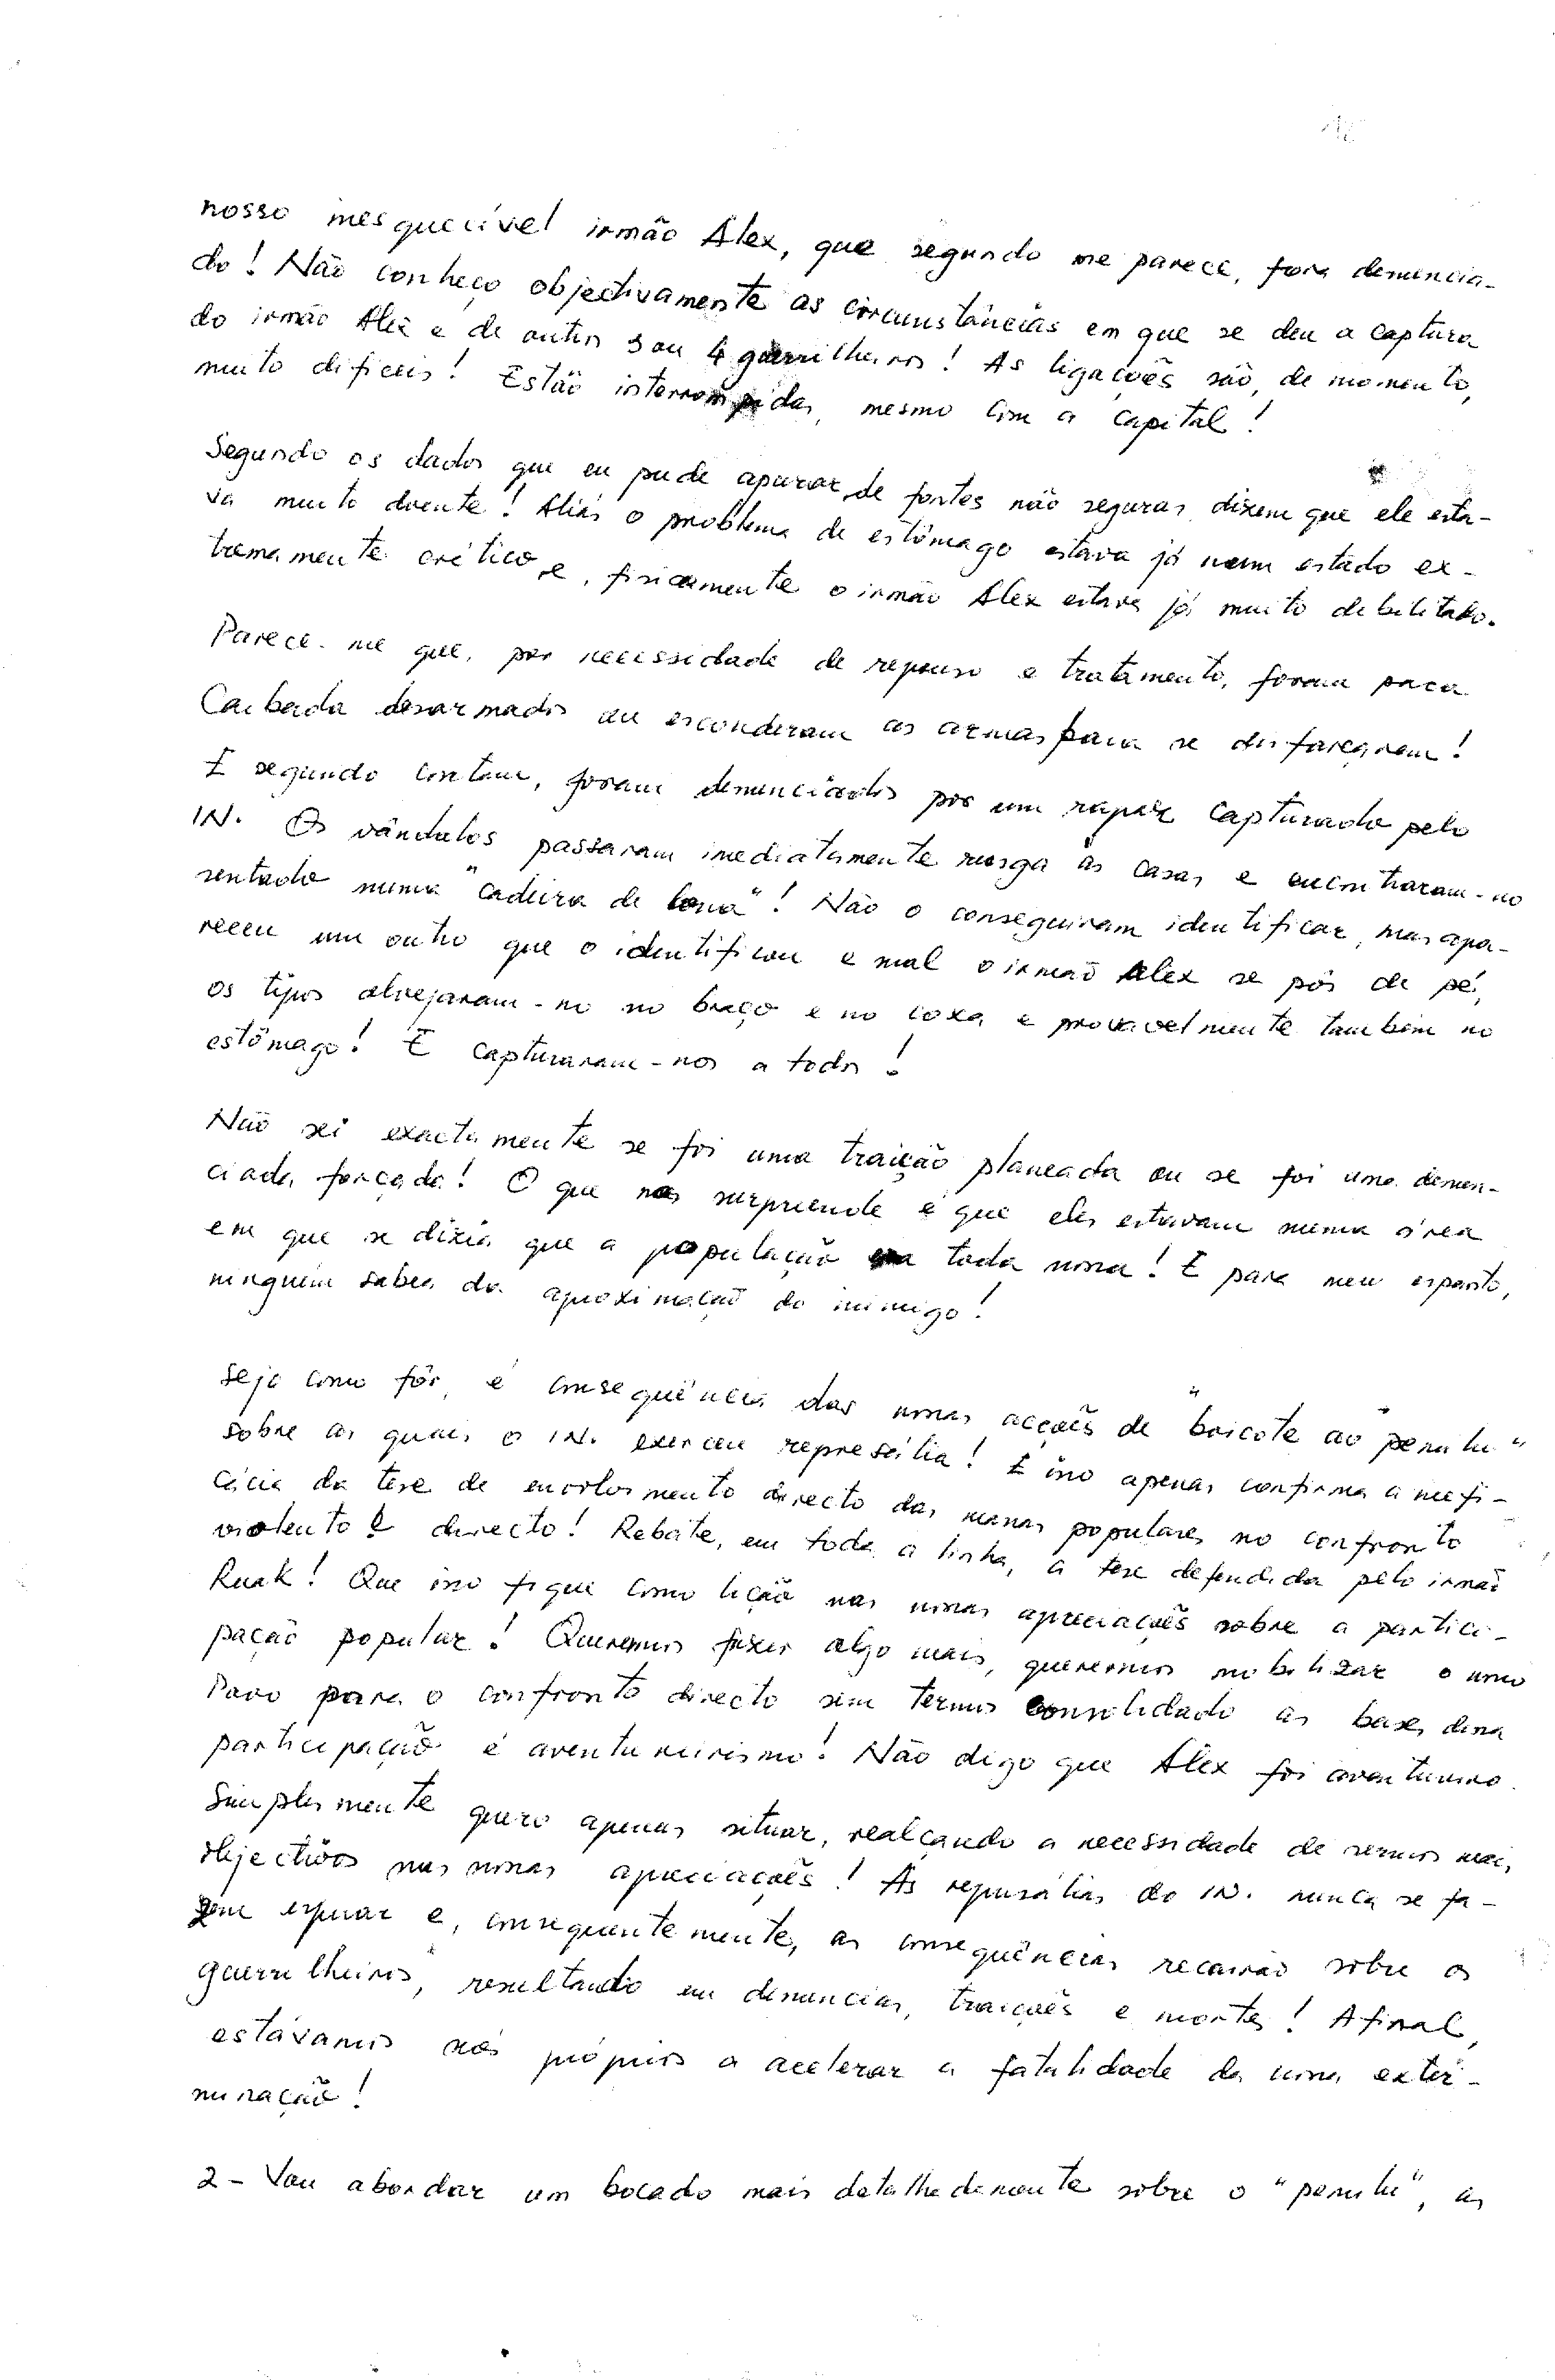 nosso inesquecível irmão Alex, que segundo me parece, fora denuncia-
do! Não conheço objectivamente as circunstâncias em que se deu a captura
do irmão Alex e de outros 3 ou 4 guerrilheiros! As ligações são, de momento,
muito difíceis! Estão interrompidas, mesmo com a capital!
Segundo os dados que eu pude apurar, de fontes não seguras, dizem que ele esta-
va muito doente! Aliás o problema de estômago estava já num estado ex-
tremamente crítico e, fisicamente o irmão Alex estava já muito debilitado.
Parece-me que, por necessidade de repouso e tratamento, foram para
Caibada desarmados ou esconderam as armas para se disfarçarem!
E segundo contam, foram denunciados por um rapaz capturado pelo
IN. Os vândalos passaram imediatamente rusga às casas e encontraram-no
sentado numa "cadeira de lona"! Não o conseguiram identificar, mas apa-
receu um outro que o identificou e mal o irmão Alex se pôs de pé,
os tipos alvejaram-no no braço e na coxa e provavelmente também no
estômago! E capturaram-nos a todos!
Não sei exactamente se foi uma traição planeada ou se foi uma denun-
ciada forçada! O que nos surpreende é que eles estavam numa área
em que se dizia que a população era toda nossa! E para meu espanto,
ninguém sabia da aproximação do inimigo!
Seja como fôr, é consequência das nossas acções de "boicote ao pemilu"
sobre as quais o IN. exerceu represália! E isso apenas confirma a inefi-
cácia da tese de envolvimento directo das massas populares no confronto
violento e directo! Rebate, em toda a linha, a tese defendida pelo irmão
Ruak! Que isso fique como lição nas nossas apreciações sobre a partici-
pação popular! Queremos fazer algo mais, queremos mobilizar o nosso
Povo para o confronto directo sem termos consolidado as bases dessa
participação é aventureirismo! Não digo que Alex foi aventureiro.
Simplesmente quero apenas situar, realçando a necessidade de sermos mais
objectivos nas nossas apreciações! As represálias do IN. nunca se fa-
zem esperar e, consequentemente, as consequências recairão sobre os
guerrilheiros, resultando em denúncias, traições e mortes! Afinal,
estávamos nós próprios a acelerar a fatalidade da nossa exter-
minação!
2 - Vou abordar um bocado mais detalhadamente sobre o "pemilu", as